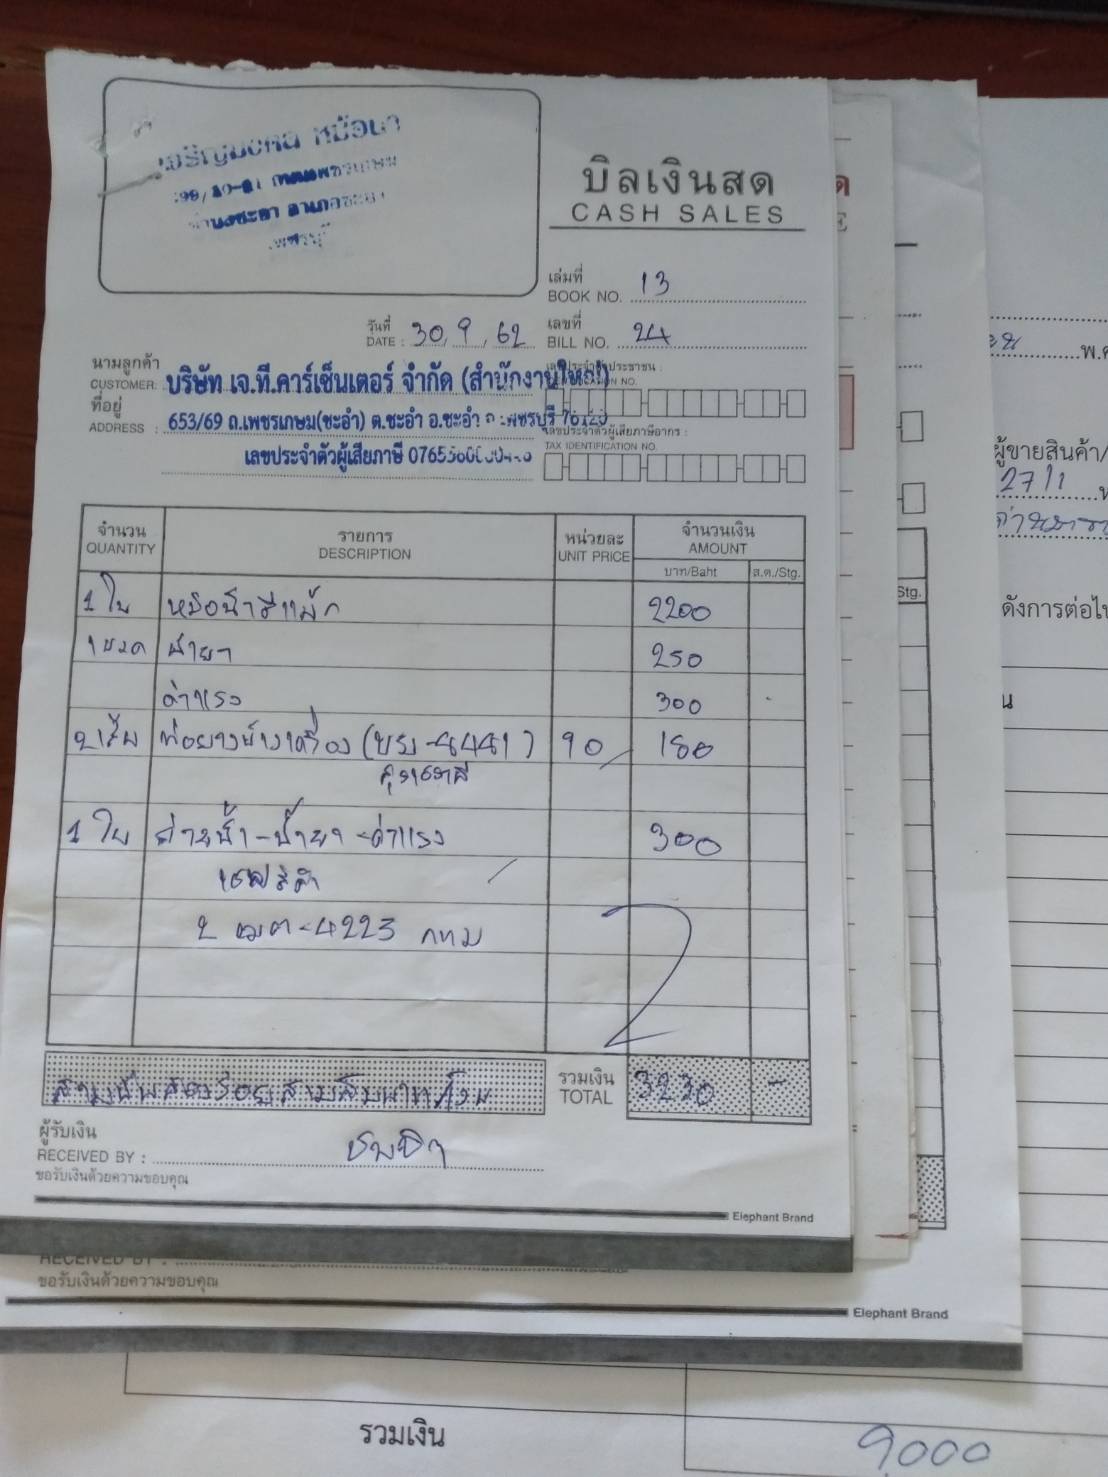 เจริญมงคล หม้อน้ำ
ถนนเพชรเกษม
อำเภอชะอำ
บิลเงินสด
CASH SALES
เล่มที่
BOOK NO. 13
วันที่
DATE : 30, 9, 62
เลขที่
BILL NO. 24
นามลูกค้า
CUSTOMER: บริษัท เจ.ที.คาร์เซ็นเตอร์ จำกัด (สำนักงานใหญ่)
ที่อยู่
ADDRESS : 653/69 ถ.เพชรเกษม(ชะอำ) ต.ชะอำ อ.ชะอำ จ.เพชรบุรี 76120
เลขประจำตัวผู้เสียภาษี
เลขประจำตัวผู้เสียภาษีอากร :
TAX IDENTIFICATION NO.
จำนวน รายการ หน่วยละ จำนวนเงิน
QUANTITY DESCRIPTION UNIT PRICE AMOUNT
บาท/Baht ส.ต./Stg.
1 ใบ หม้อน้ำดีแม็ก 2200
1 ขวด น้ำยา 250
ค่าแรง 300
2 เส้น ท่อยาง 90 180
1 ใบ ถ่ายน้ำ-น้ำยา-ค่าแรง 300
4223 กทม
2
สามพันสองร้อยสามสิบบาทถ้วน
รวมเงิน
TOTAL 3230 -
ผู้รับเงิน
RECEIVED BY :
ขอรับเงินด้วยความขอบคุณ
Elephant Brand
RECEIVED BY :
ขอรับเงินด้วยความขอบคุณ
Elephant Brand
Stg.
พ.ศ
ผู้ขายสินค้า/
27/1
ดังการต่อไป
รวมเงิน 9000